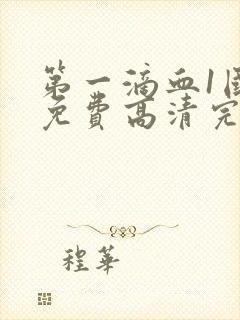 第一滴血1
免費高清完
程華